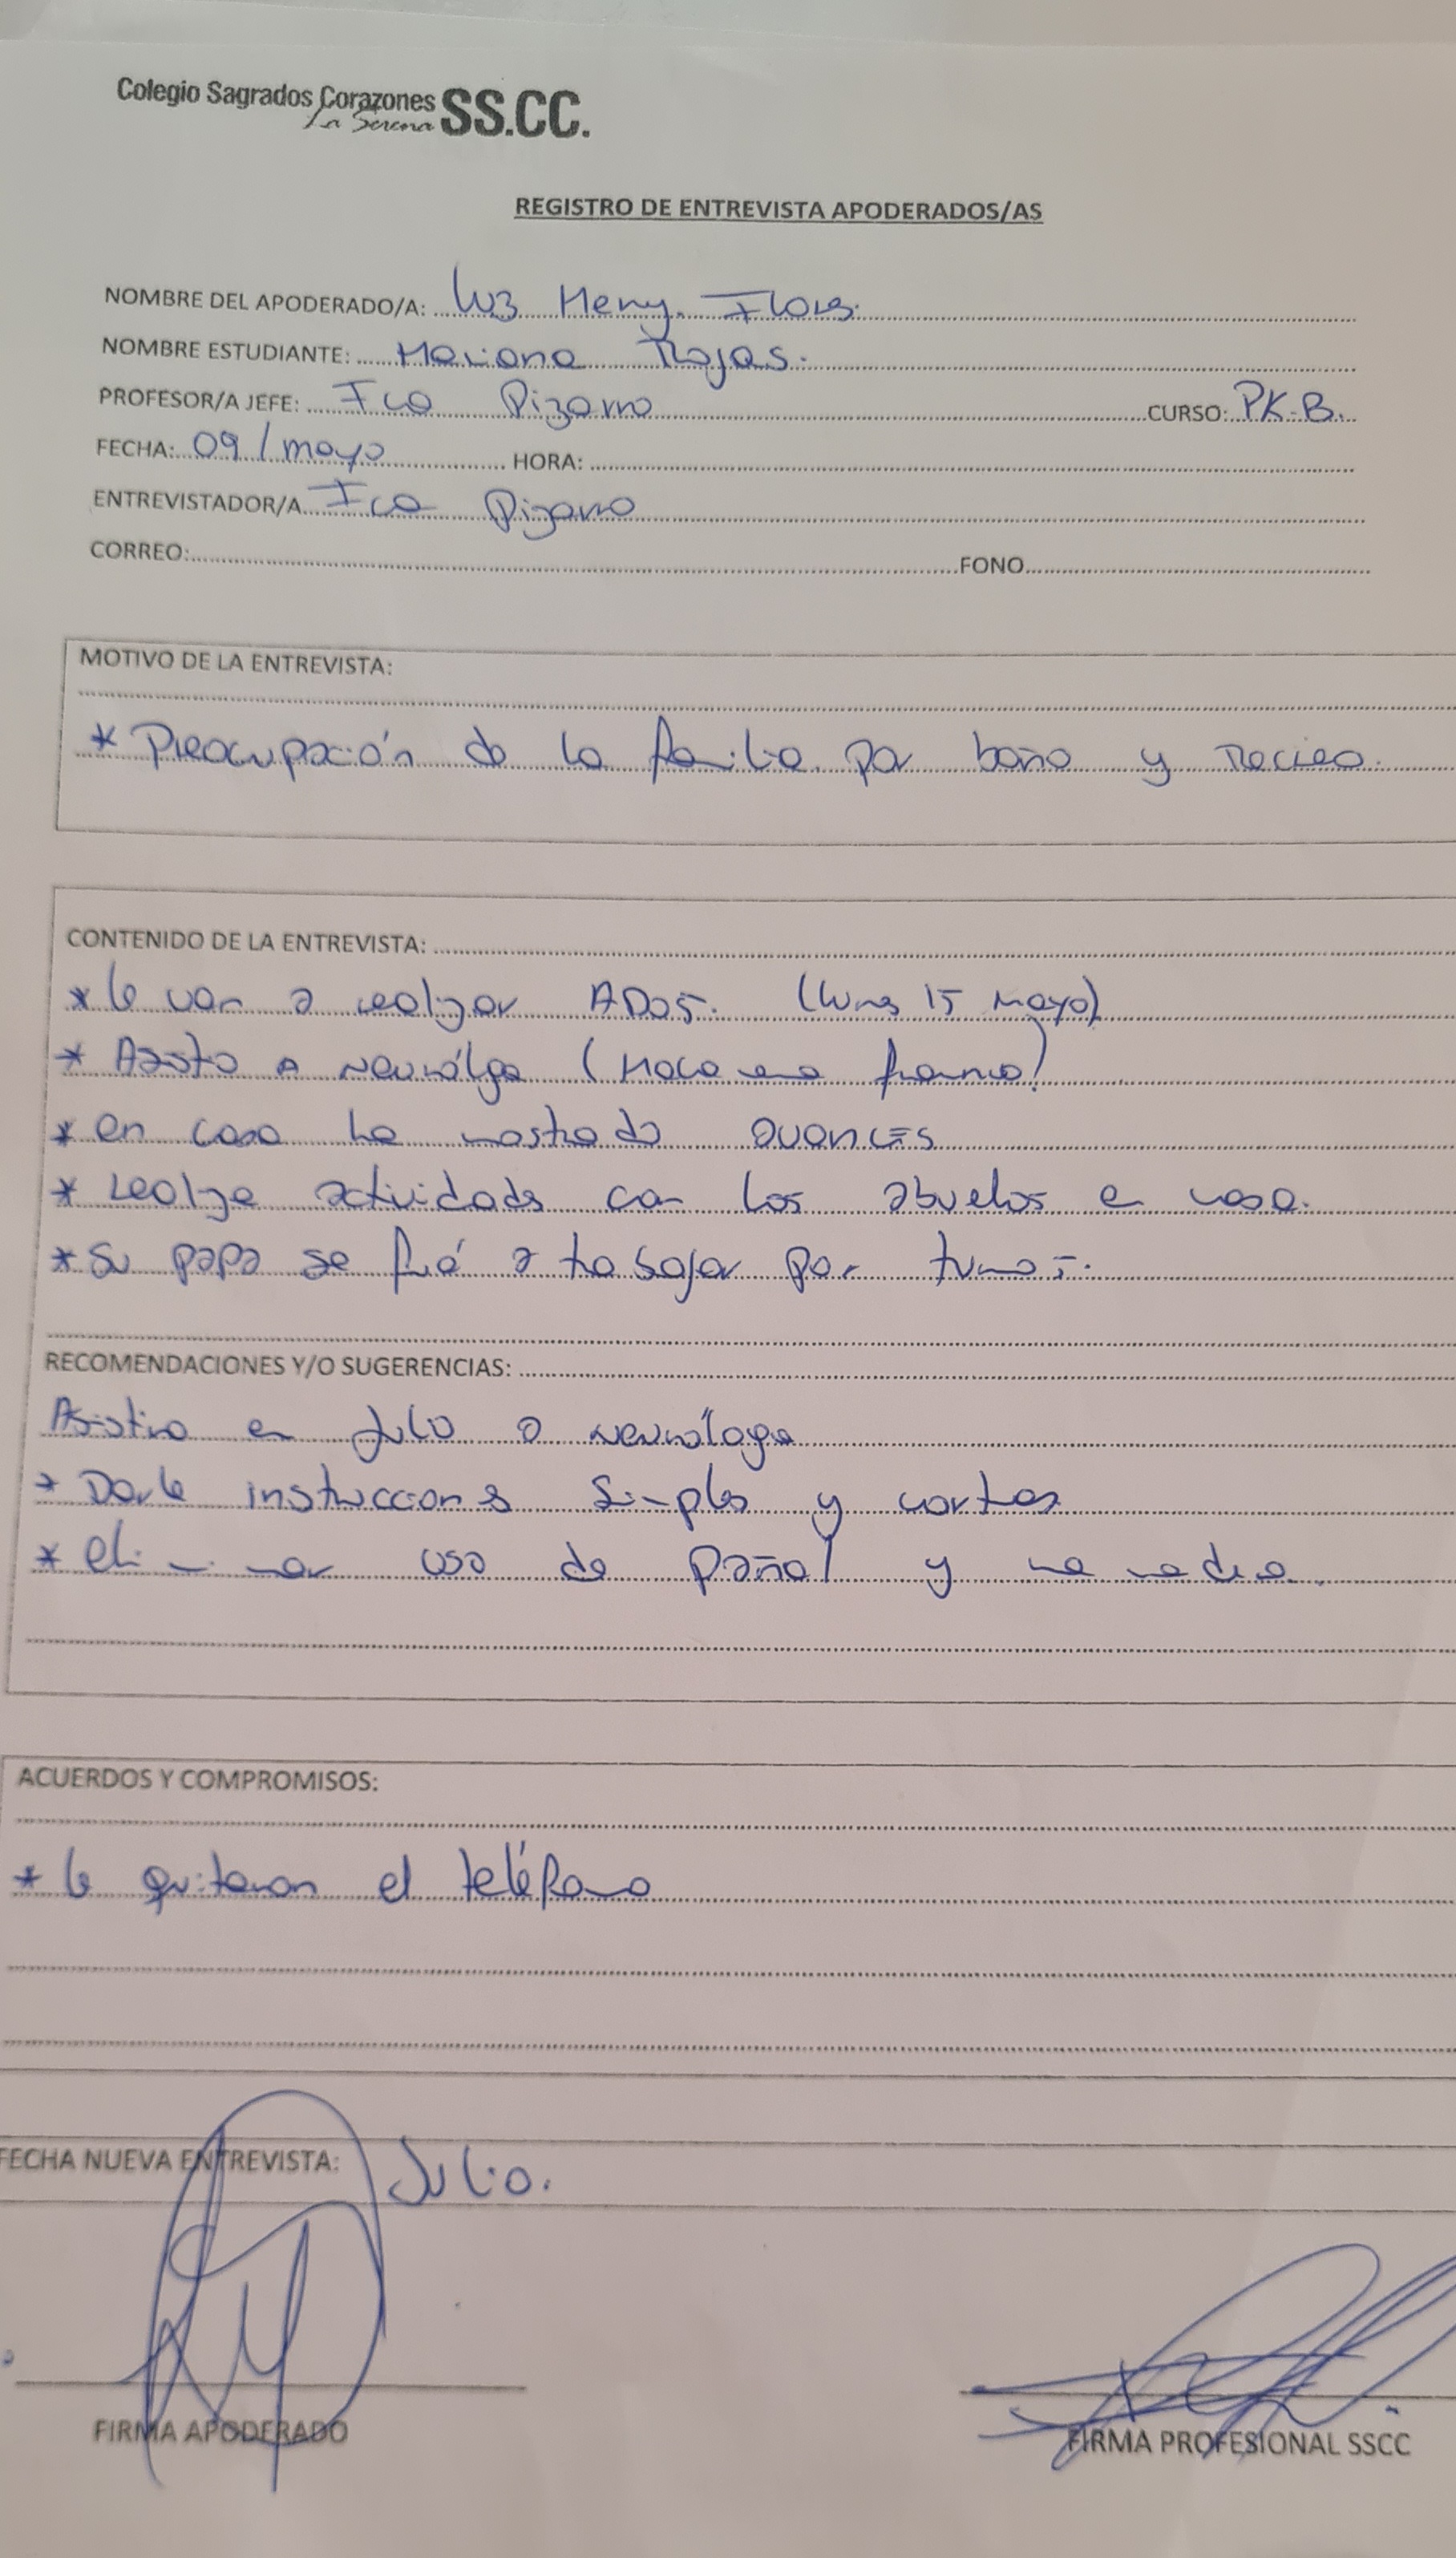 Colegio Sagrados Corazones SS.CC.
La Serena
REGISTRO DE ENTREVISTA APODERADOS/AS
NOMBRE DEL APODERADO/A: Luz Meny. Flores.
NOMBRE ESTUDIANTE: Mariana Rojas.
PROFESOR/A JEFE: Fca Pizarro CURSO: PK-B.
FECHA: 09/mayo HORA:
ENTREVISTADOR/A Fca Pizarro
CORREO: FONO
MOTIVO DE LA ENTREVISTA:
* Preocupación de la familia por baño y recreo.
CONTENIDO DE LA ENTREVISTA:
* le van a realizar ADOS. (lunes 15 mayo)
* Asiste a neuróloga (Macarena franco)
* en casa ha mostrado avances
* realiza actividades con los abuelos en casa.
* Su papá se fué a trabajar por turnos.
RECOMENDACIONES Y/O SUGERENCIAS:
Asistirá en Julio a neuróloga
* Darle instrucciones simples y cortas
* eliminar uso de pañal y mamadera.
ACUERDOS Y COMPROMISOS:
* le quitaron el teléfono
FECHA NUEVA ENTREVISTA: Julio.
FIRMA APODERADO FIRMA PROFESIONAL SSCC